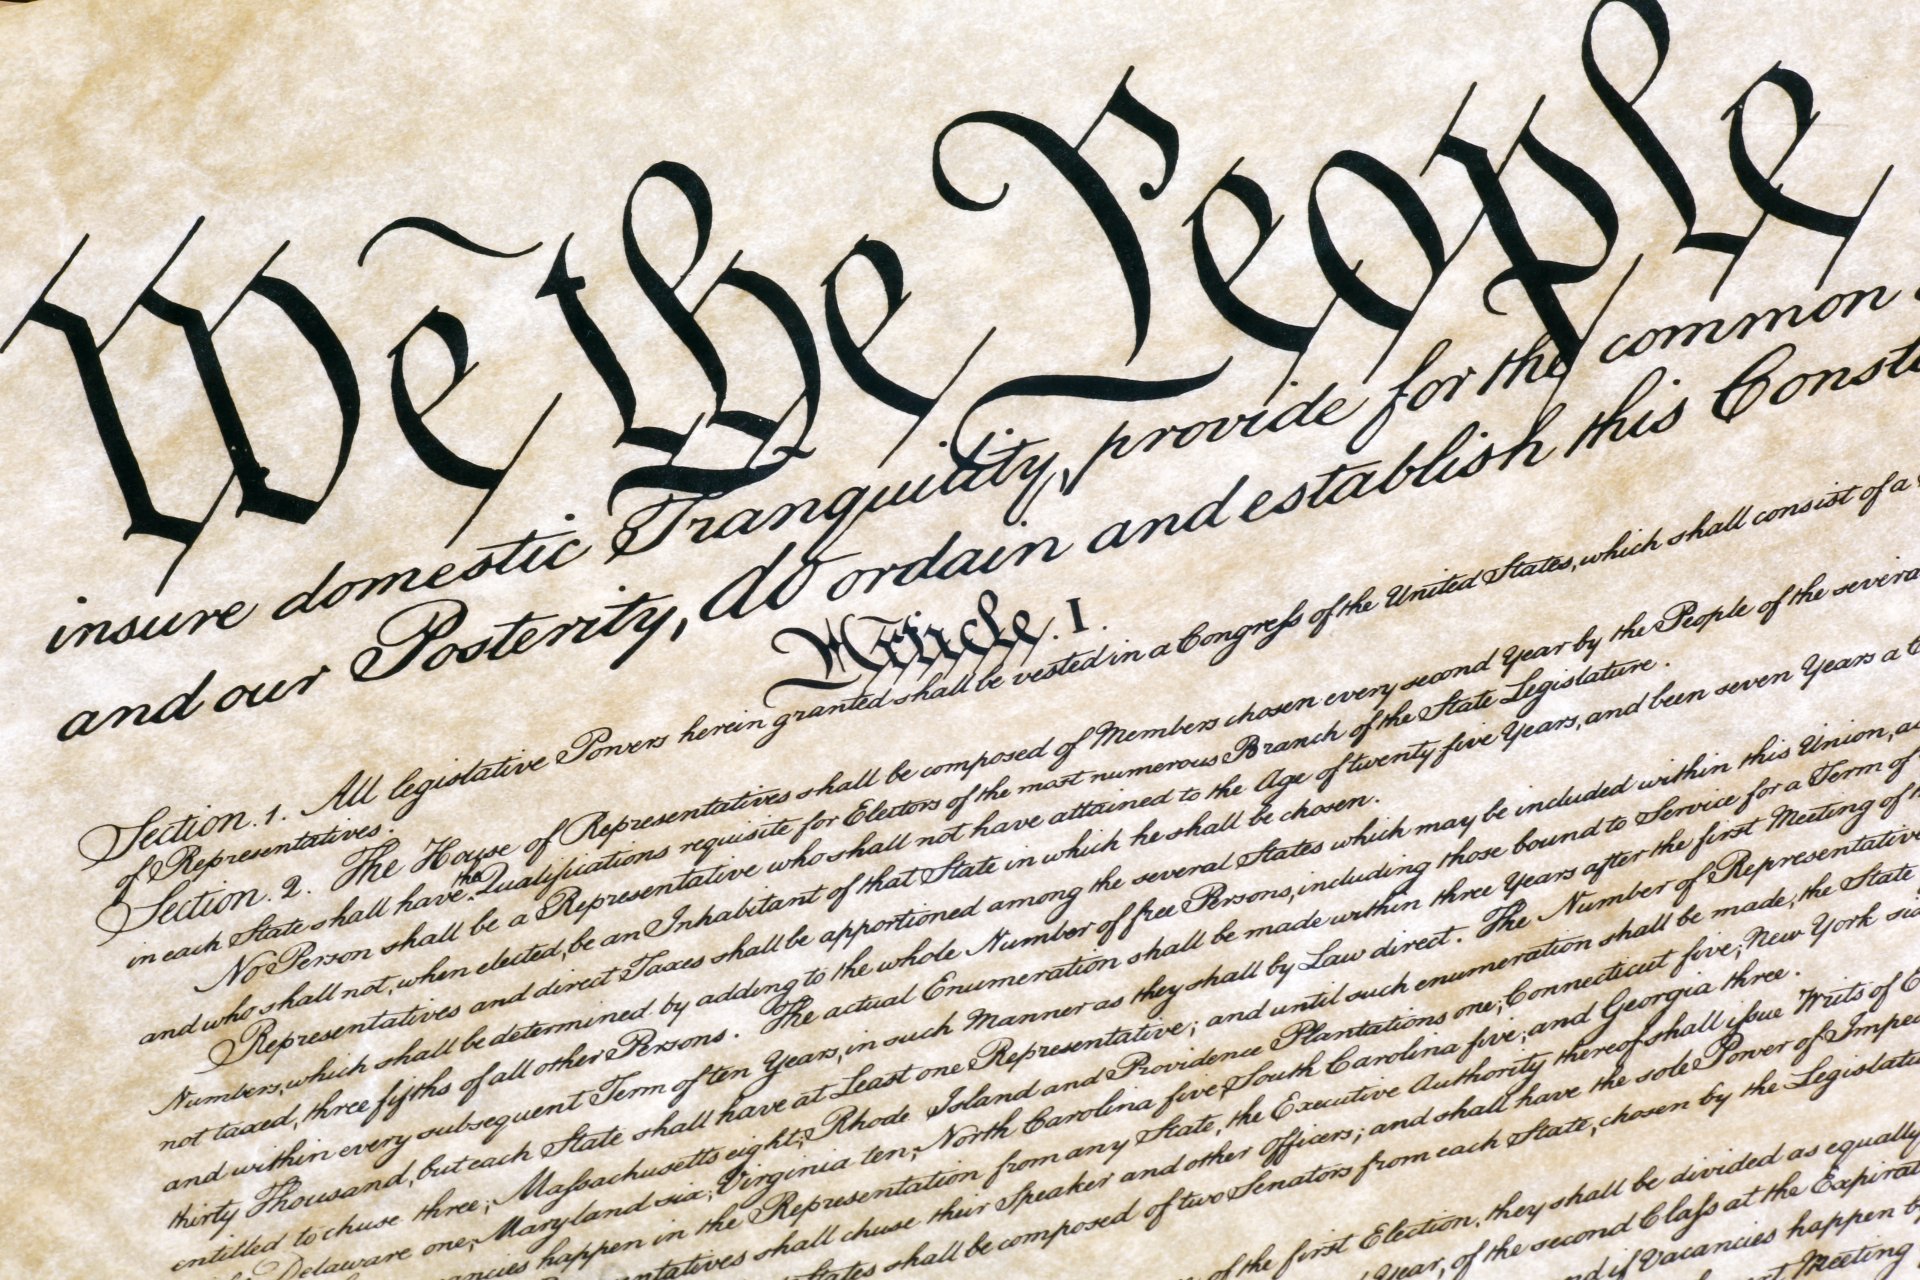 We the People
insure domestic Tranquility, provide for the common
and our Posterity, do ordain and establish this Const
Article. I.
Section. 1. All legislative Powers herein granted shall be vested in a Congress of the United States, which shall consist of a
of Representatives.
Section. 2. The House of Representatives shall be composed of Members chosen every second Year by the People of the several
in each State shall have the Qualifications requisite for Electors of the most numerous Branch of the State Legislature.
No Person shall be a Representative who shall not have attained to the Age of twenty five Years, and been seven Years a
and who shall not, when elected, be an Inhabitant of that State in which he shall be chosen.
Representatives and direct Taxes shall be apportioned among the several States which may be included within this Union, ac
Numbers, which shall be determined by adding to the whole Number of free Persons, including those bound to Service for a Term of
not taxed, three fifths of all other Persons. The actual Enumeration shall be made within three Years after the first Meeting of
and within every subsequent Term of ten Years, in such Manner as they shall by Law direct. The Number of Representatives
thirty Thousand, but each State shall have at Least one Representative; and until such enumeration shall be made, the State
entitled to chuse three, Massachusetts eight, Rhode Island and Providence Plantations one, Connecticut five, New York six
Delaware one, Maryland six, Virginia ten, North Carolina five, South Carolina five, and Georgia three.
ancies happen in the Representation from any State, the Executive Authority thereof shall issue Writs of
entatives shall chuse their Speaker and other Officers; and shall have the sole Power of Impea
States shall be composed of two Senators from each State, chosen by the Legislatu
of the first Election, they shall be divided as equally
Year, of the second Class at the Expirat
if Vacancies happen b
Meeting